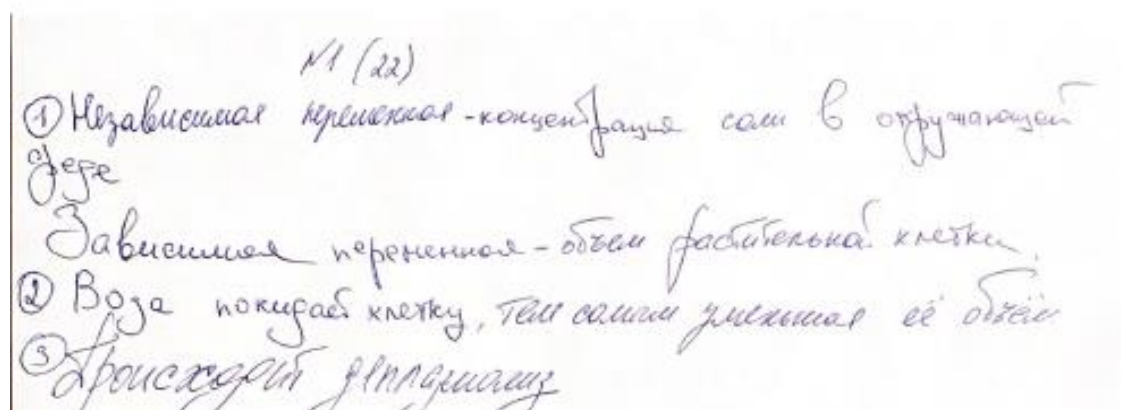 №1 (22)
① Независимая переменная - концентрация соли в окружающей
среде
Зависимая переменная - объем растительной клетки.
② Вода покидает клетку, тем самым уменьшая её объём
③ Происходит деплазмолиз